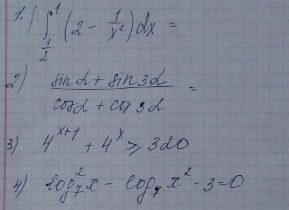 1.) ∫_{1/2}^{1} (2 - 1/x²)dx =
2) (sin2 + sin32)/(cos2 + cos32) =
3) 4^{x+1} + 4^x ≥ 320
4) log₇²x - log₇x² - 3 = 0